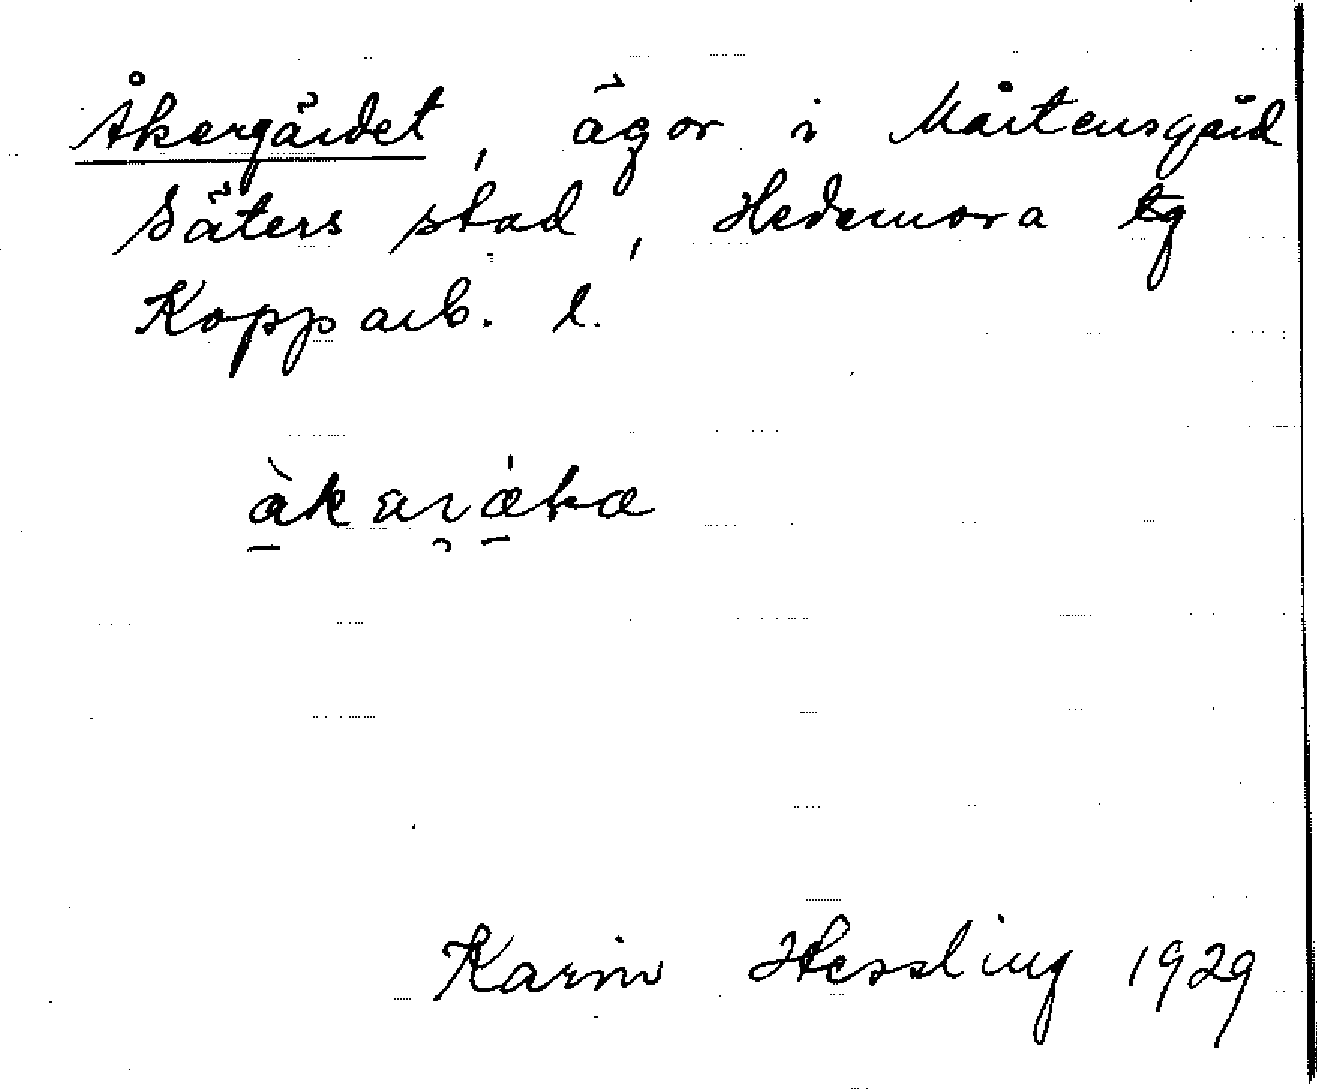 Åkergärdet, ägor i Mårtensgärd
Säters stad, Hedemora tg
Kopparb. l.
Karin Hessling 1929